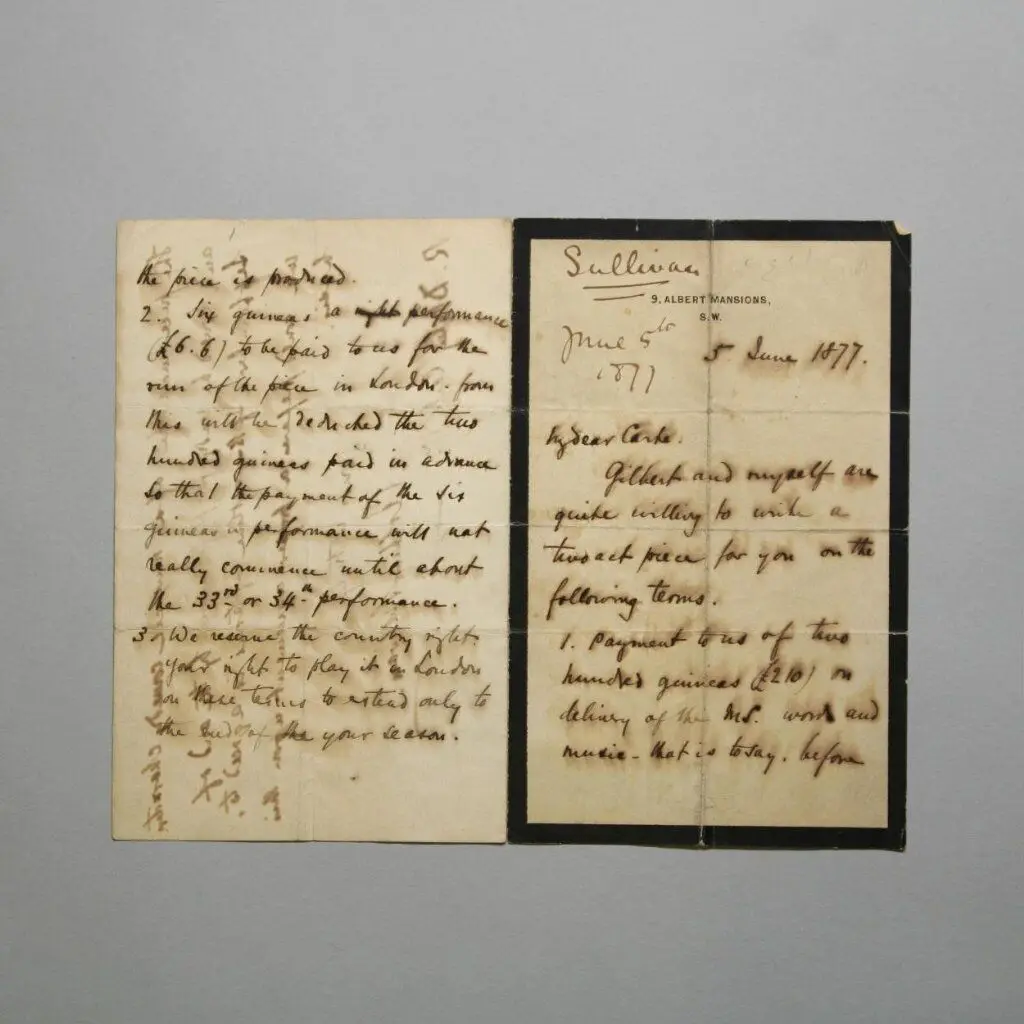 Sullivan
9. ALBERT MANSIONS,
S.W.
June 5th
1877
5 June 1877.
My dear Carte.
Gilbert and myself are
quite willing to write a
two act piece for you on the
following terms.
1. Payment to us of two
hundred guineas (£210) on
delivery of the MS. words and
music - that is to say, before
the piece is produced.
2. Six guineas a night performance
(£6.6) to be paid to us for the
run of the piece in London. from
this will be deducted the two
hundred guineas paid in advance
so that the payment of the six
guineas performance will not
really commence until about
the 33rd or 34th performance.
3. We reserve the country right.
your right to play it in London
on these terms to extend only to
the end of the your season.